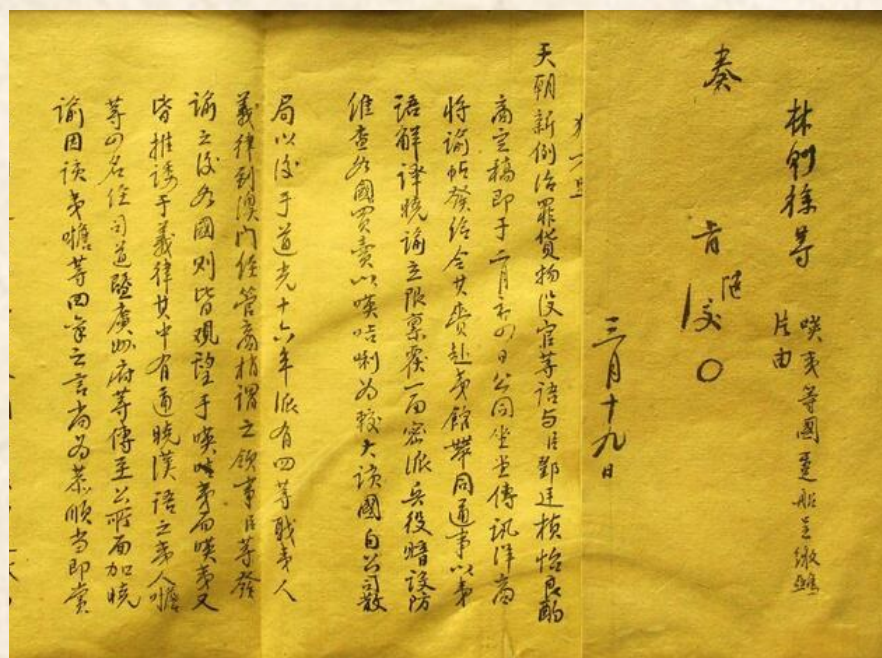 林則徐等
𠸄夷等國躉船呈繳鴉
片由
奏
三月十九日
天朝新例治罪貨物没官等語与臣鄧廷楨怡良酌
商定稿即于二月初四日公同坐堂傳訊洋商
將諭帖發給令其賫赴夷館帶同通事以夷
語解譯曉諭立限禀覆一面密派兵役暗設防
維查各國買賣以𠸄咭唎為較大該國自公司散
局以後于道光十六年派有四等職夷人
義律到澳門經管商梢謂之領事臣等發
諭之後各國則皆观望于𠸄咭夷而𠸄夷又
皆推諉于義律其中有通曉漢語之夷人噡
等四名經司道暨廣州府等傳至公所面加曉
諭因该夷噡等回禀之言尚为恭順当即賞